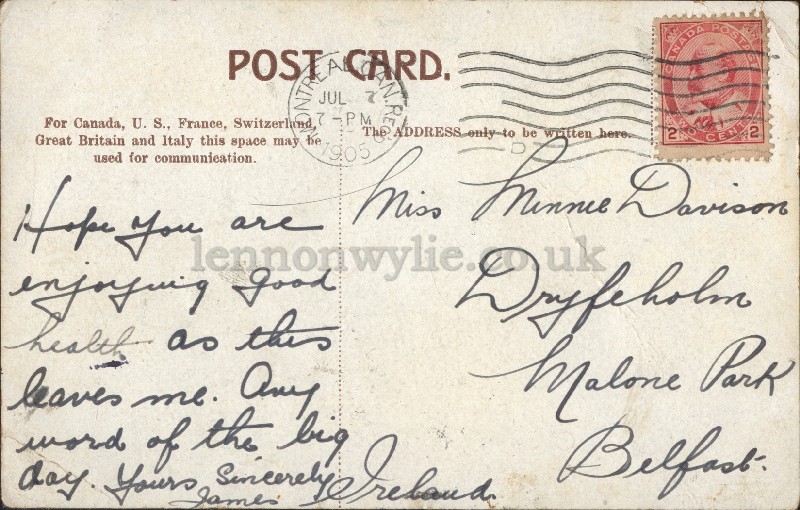 POST CARD.
MONTREAL CAN. REC'D
JUL 7
7-PM
1905
CANADA POSTAGE
2 TWO CENTS 2
For Canada, U. S., France, Switzerland,
Great Britain and Italy this space may be
used for communication.
The ADDRESS only to be written here.
D
Hope you are
enjoying good
health as this
leaves me. Any
word of the big
day. Yours Sincerely
James
Miss Minnie Davison
Dryfeholm
Malone Park
Belfast.
Ireland.
lennonwylie.co.uk